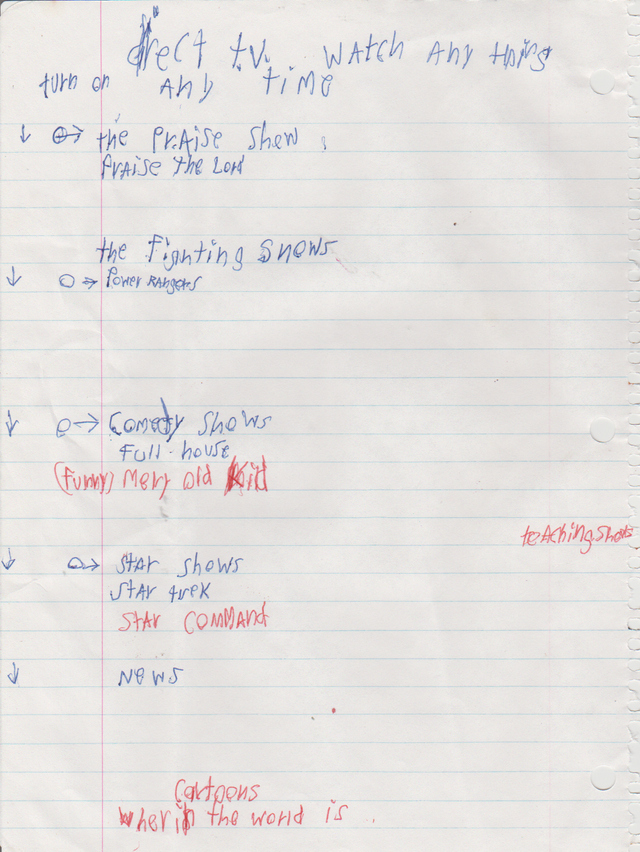 direct t.v. watch any thing
turn on any time
↓ ⊕→ the Praise show
Praise the Lord
the Fighting Shows
↓ ○→ Power Rangers
↓ ○→ Comedy shows
Full house
(Funny) Mery old
teaching shows
↓ ○→ Star shows
Star trek
Star Command
↓ News
Cartoons
Wherin the world is